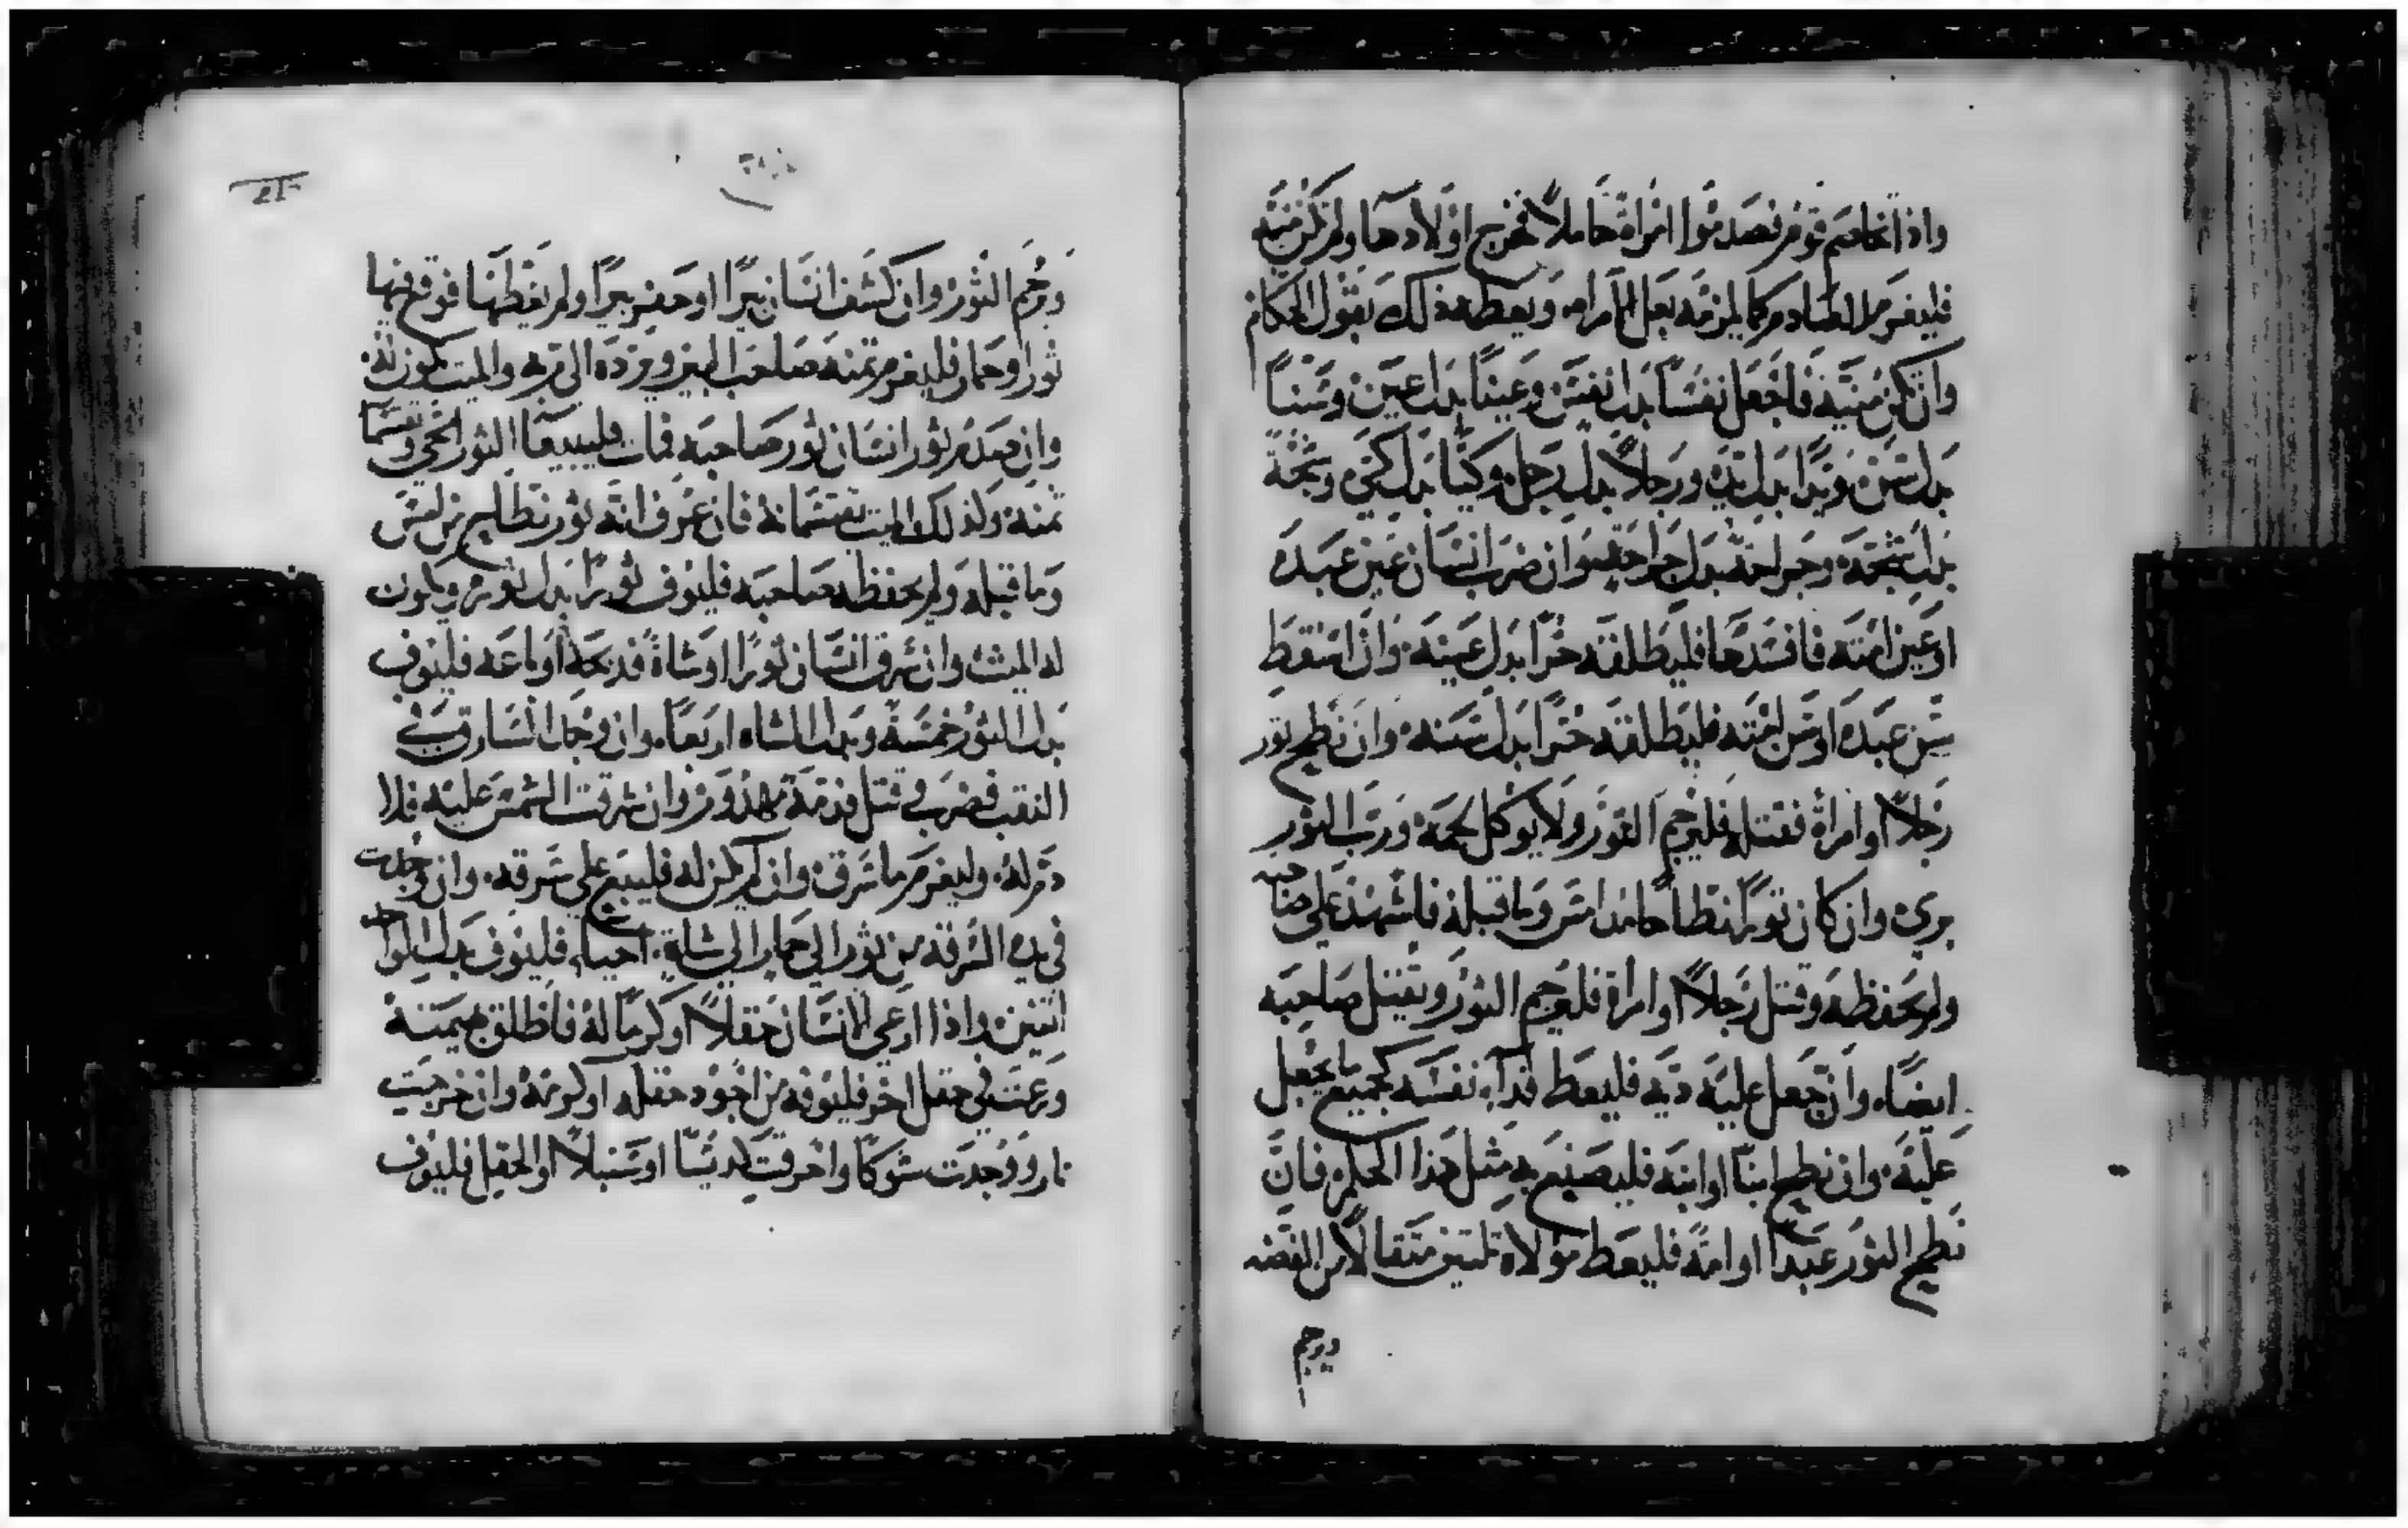 واذا تخاصم قوم فصدموا امراة حاملا فخرج اولادها ولم تكن منية
فليغرم الصادم كما يلزمه بعل المراه ويعطه ذلك بقول الحكام
وان تكن منية فاجعل نفسا بدل نفس وعينا بدل عين وسنا
بدل سن ويدا بدل يد ورجلا بدل رجل وكيا بدل كي وشجة
بدل شجة وجراحة بدل جراحة وان ضرب انسان عين عبده
او عين امته فافسدها فليطلقه حرا بدل عينه وان اسقط
سن عبده او سن امته فليطلقه حرا بدل سنه وان نطح ثور
رجلا او امراة فقتله فليرجم الثور ولا يوكل لحمه ورب الثور
بري وان كان ثورا نطاحا مذ امس وما قبله فاشهد على صاحبه
ولم يحفظه وقتل رجلا او امراة فليرجم الثور ويقتل صاحبه
ايضا وان جعل عليه دية فليعط فداء نفسه كجميع ما يجعل
عليه وان نطح ابنا او ابنه فليصنع به مثل هذا الحكم فان
نطح الثور عبدا او امة فليعط مولاه ثلثين مثقالا من الفضه
ويرجم
21
ويرجم الثور وان كشف انسان بيرا او حفر بيرا ولم يغطها فوقع فيها
ثور او حمار فليغرم ثمنه صاحب البير ويرده الى ربه والميت يكون له
وان صدم ثور انسان ثور صاحبه فمات فليبيعا الثور الحي ويقسما
ثمنه وكذلك الميت يقتسمانه فان عرف انه ثور نطاح من امس
وما قبله ولم يحفظه صاحبه فليوف ثورا بدل ثور ويكون
له الميت وان سرق انسان ثورا او شاة فذبحه او باعه فليوف
بدل الثور خمسة وبدل الشاه اربعا وان وجد السارق في
النقب فضرب وقتل فدمه مهدوم وان شرقت الشمس عليه فلا
دم له وليغرم ما سرق وان لم يكن له فليبع على سرقه وان وجدت
في يده السرقه من ثور الى حمار الى شاة احياء فليوف بدل الواحد
اثنين واذا ارعى الانسان حقلا او كرما له فاطلق بهيمته
ورعت في حقل اخر فليوفه من اجود حقله او كرمه وان خرجت
نار ووجدت شوكا واحرقت كديسا او سنبلا او الحقل فليوف